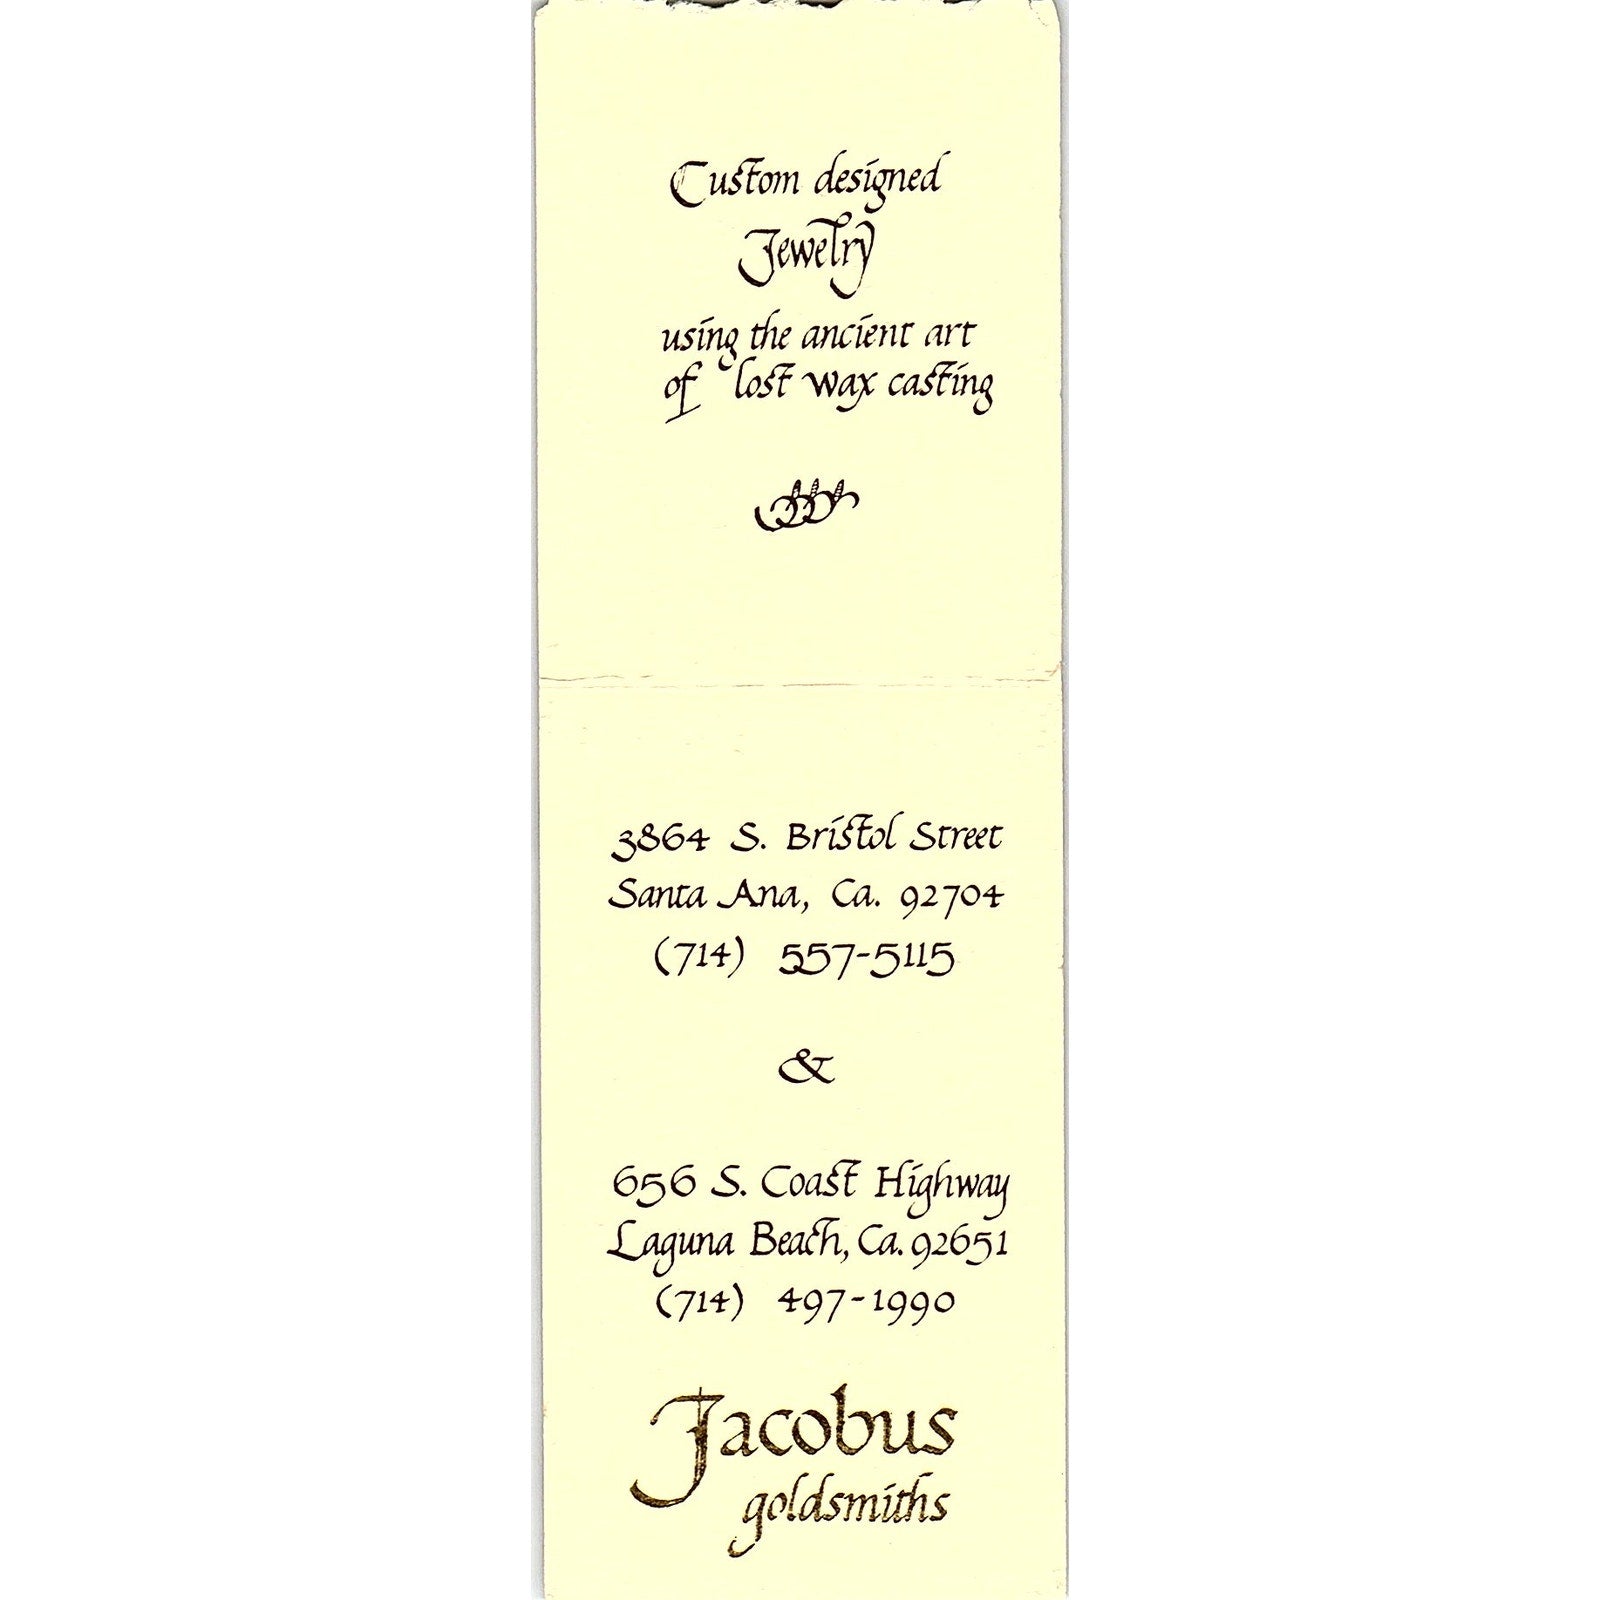 Custom designed
Jewelry
using the ancient art
of lost wax casting
3864 S. Bristol Street
Santa Ana, Ca. 92704
(714) 557-5115
&
656 S. Coast Highway
Laguna Beach, Ca. 92651
(714) 497-1990
Jacobus
goldsmiths